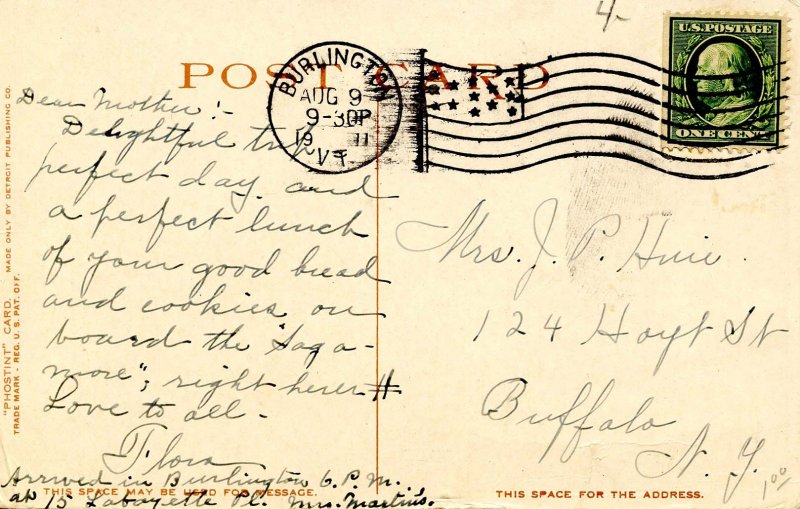 4-
POST CARD
U.S. POSTAGE
ONE CENT
BURLINGTON
AUG 9
9-30P
19 11
VT.
Dear Mother:-
Delightful trip
perfect day and
a perfect lunch
of your good bread
and cookies on
board the "Saga-
more", right here #
Love to all-
Flora
Arrived in Burlington 6 P.M.
at 15 Lafayette Pl. Mrs. Martin's.
Mrs. J. P. Huie
124 Hoyt St
Buffalo
N. Y.
1.00/
THIS SPACE MAY BE USED FOR MESSAGE.
THIS SPACE FOR THE ADDRESS.
"PHOSTINT" CARD. MADE ONLY BY DETROIT PUBLISHING CO.
TRADE MARK - REG. U.S. PAT. OFF.